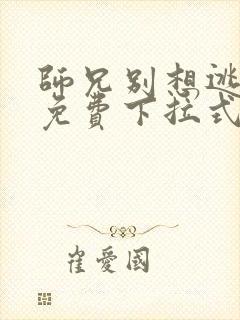 師兄別想逃
免費下拉式
崔愛國